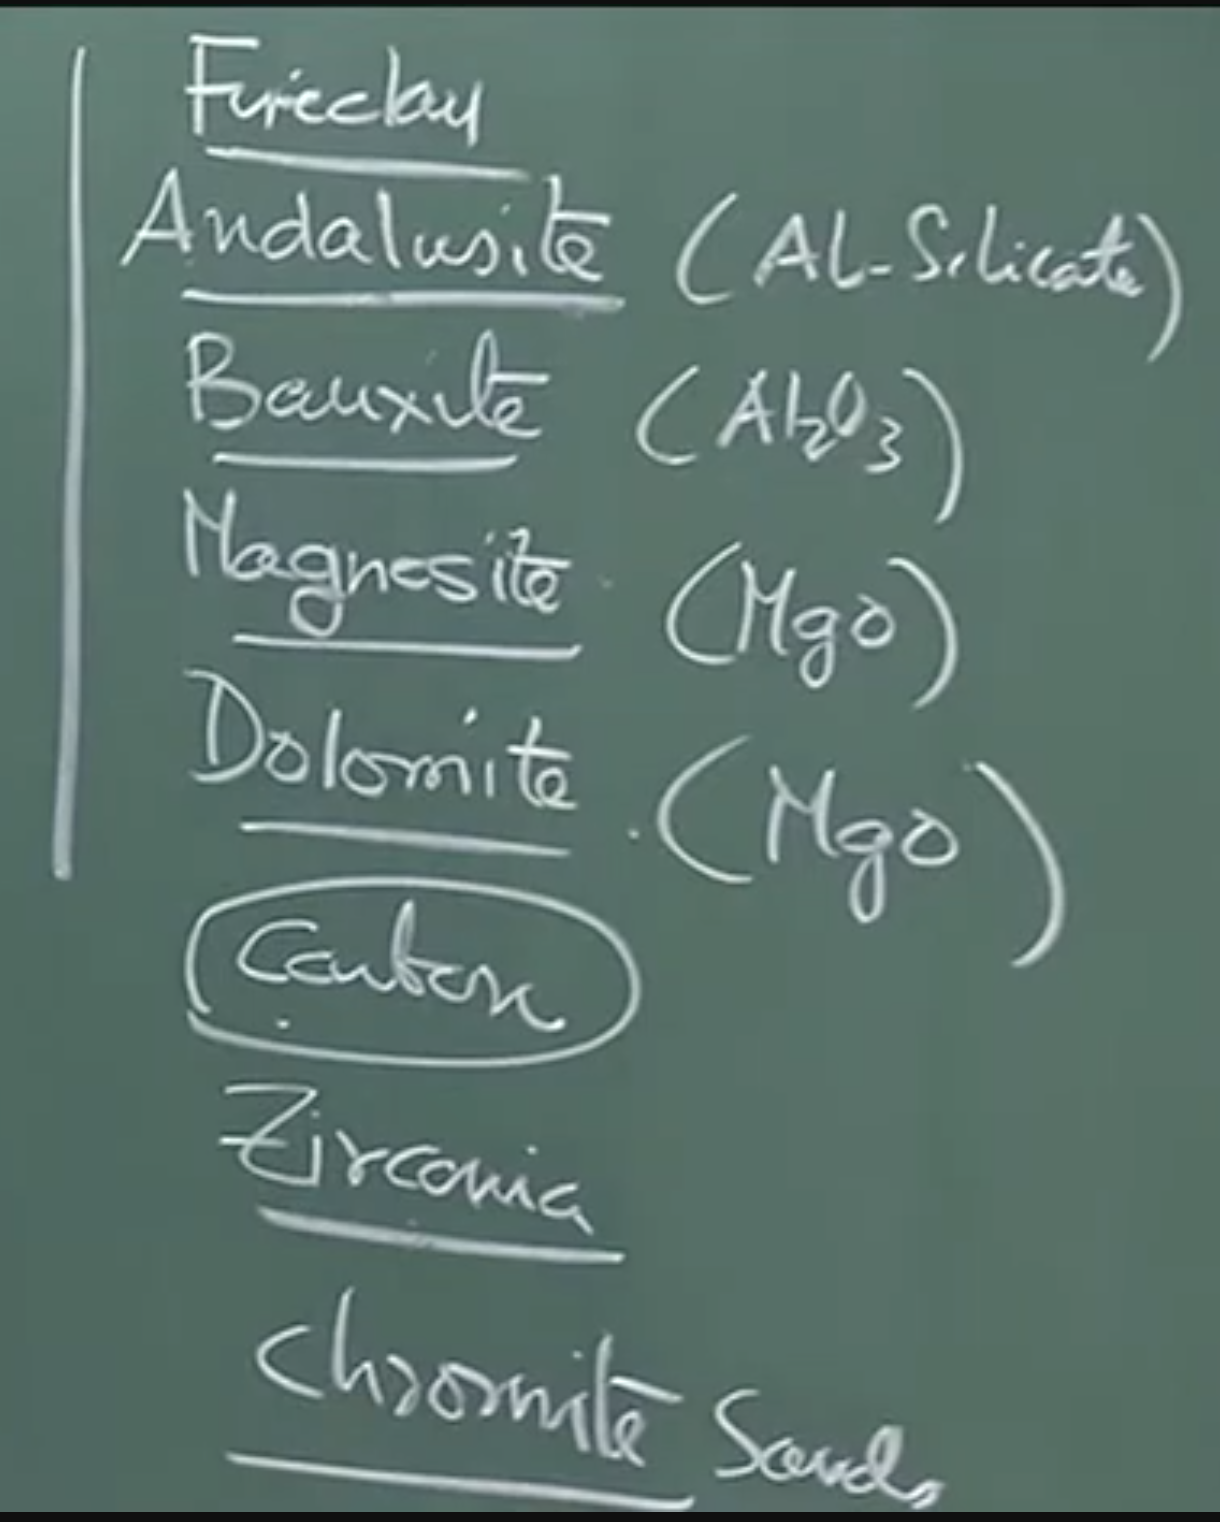 Fireclay
Andalusite (Al-Silicate)
Bauxite (Al2O3)
Magnesite (MgO)
Dolomite (MgO)
Carbon
Zirconia
Chromite Sands